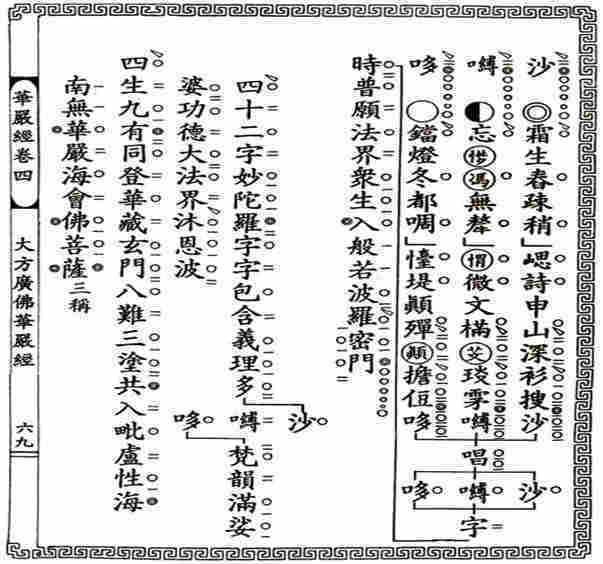 沙 霜生春疎稍」詩申山深衫搜沙
嚩 忘馮無」微文樠琰嚩
哆 鐺燈冬都啁」堤顛殫顛擔哆
唱
沙 嚩 哆
字
時普願法界衆生入般若波羅密門
四十二字妙陀羅字字包含義理多
沙 嚩 哆
梵韻滿娑
婆功德大法界沐恩波
四生九有同登華藏玄門八難三塗共入毗盧性海
南無華嚴海會佛菩薩三稱
華嚴經卷四 大方廣佛華嚴經 六九